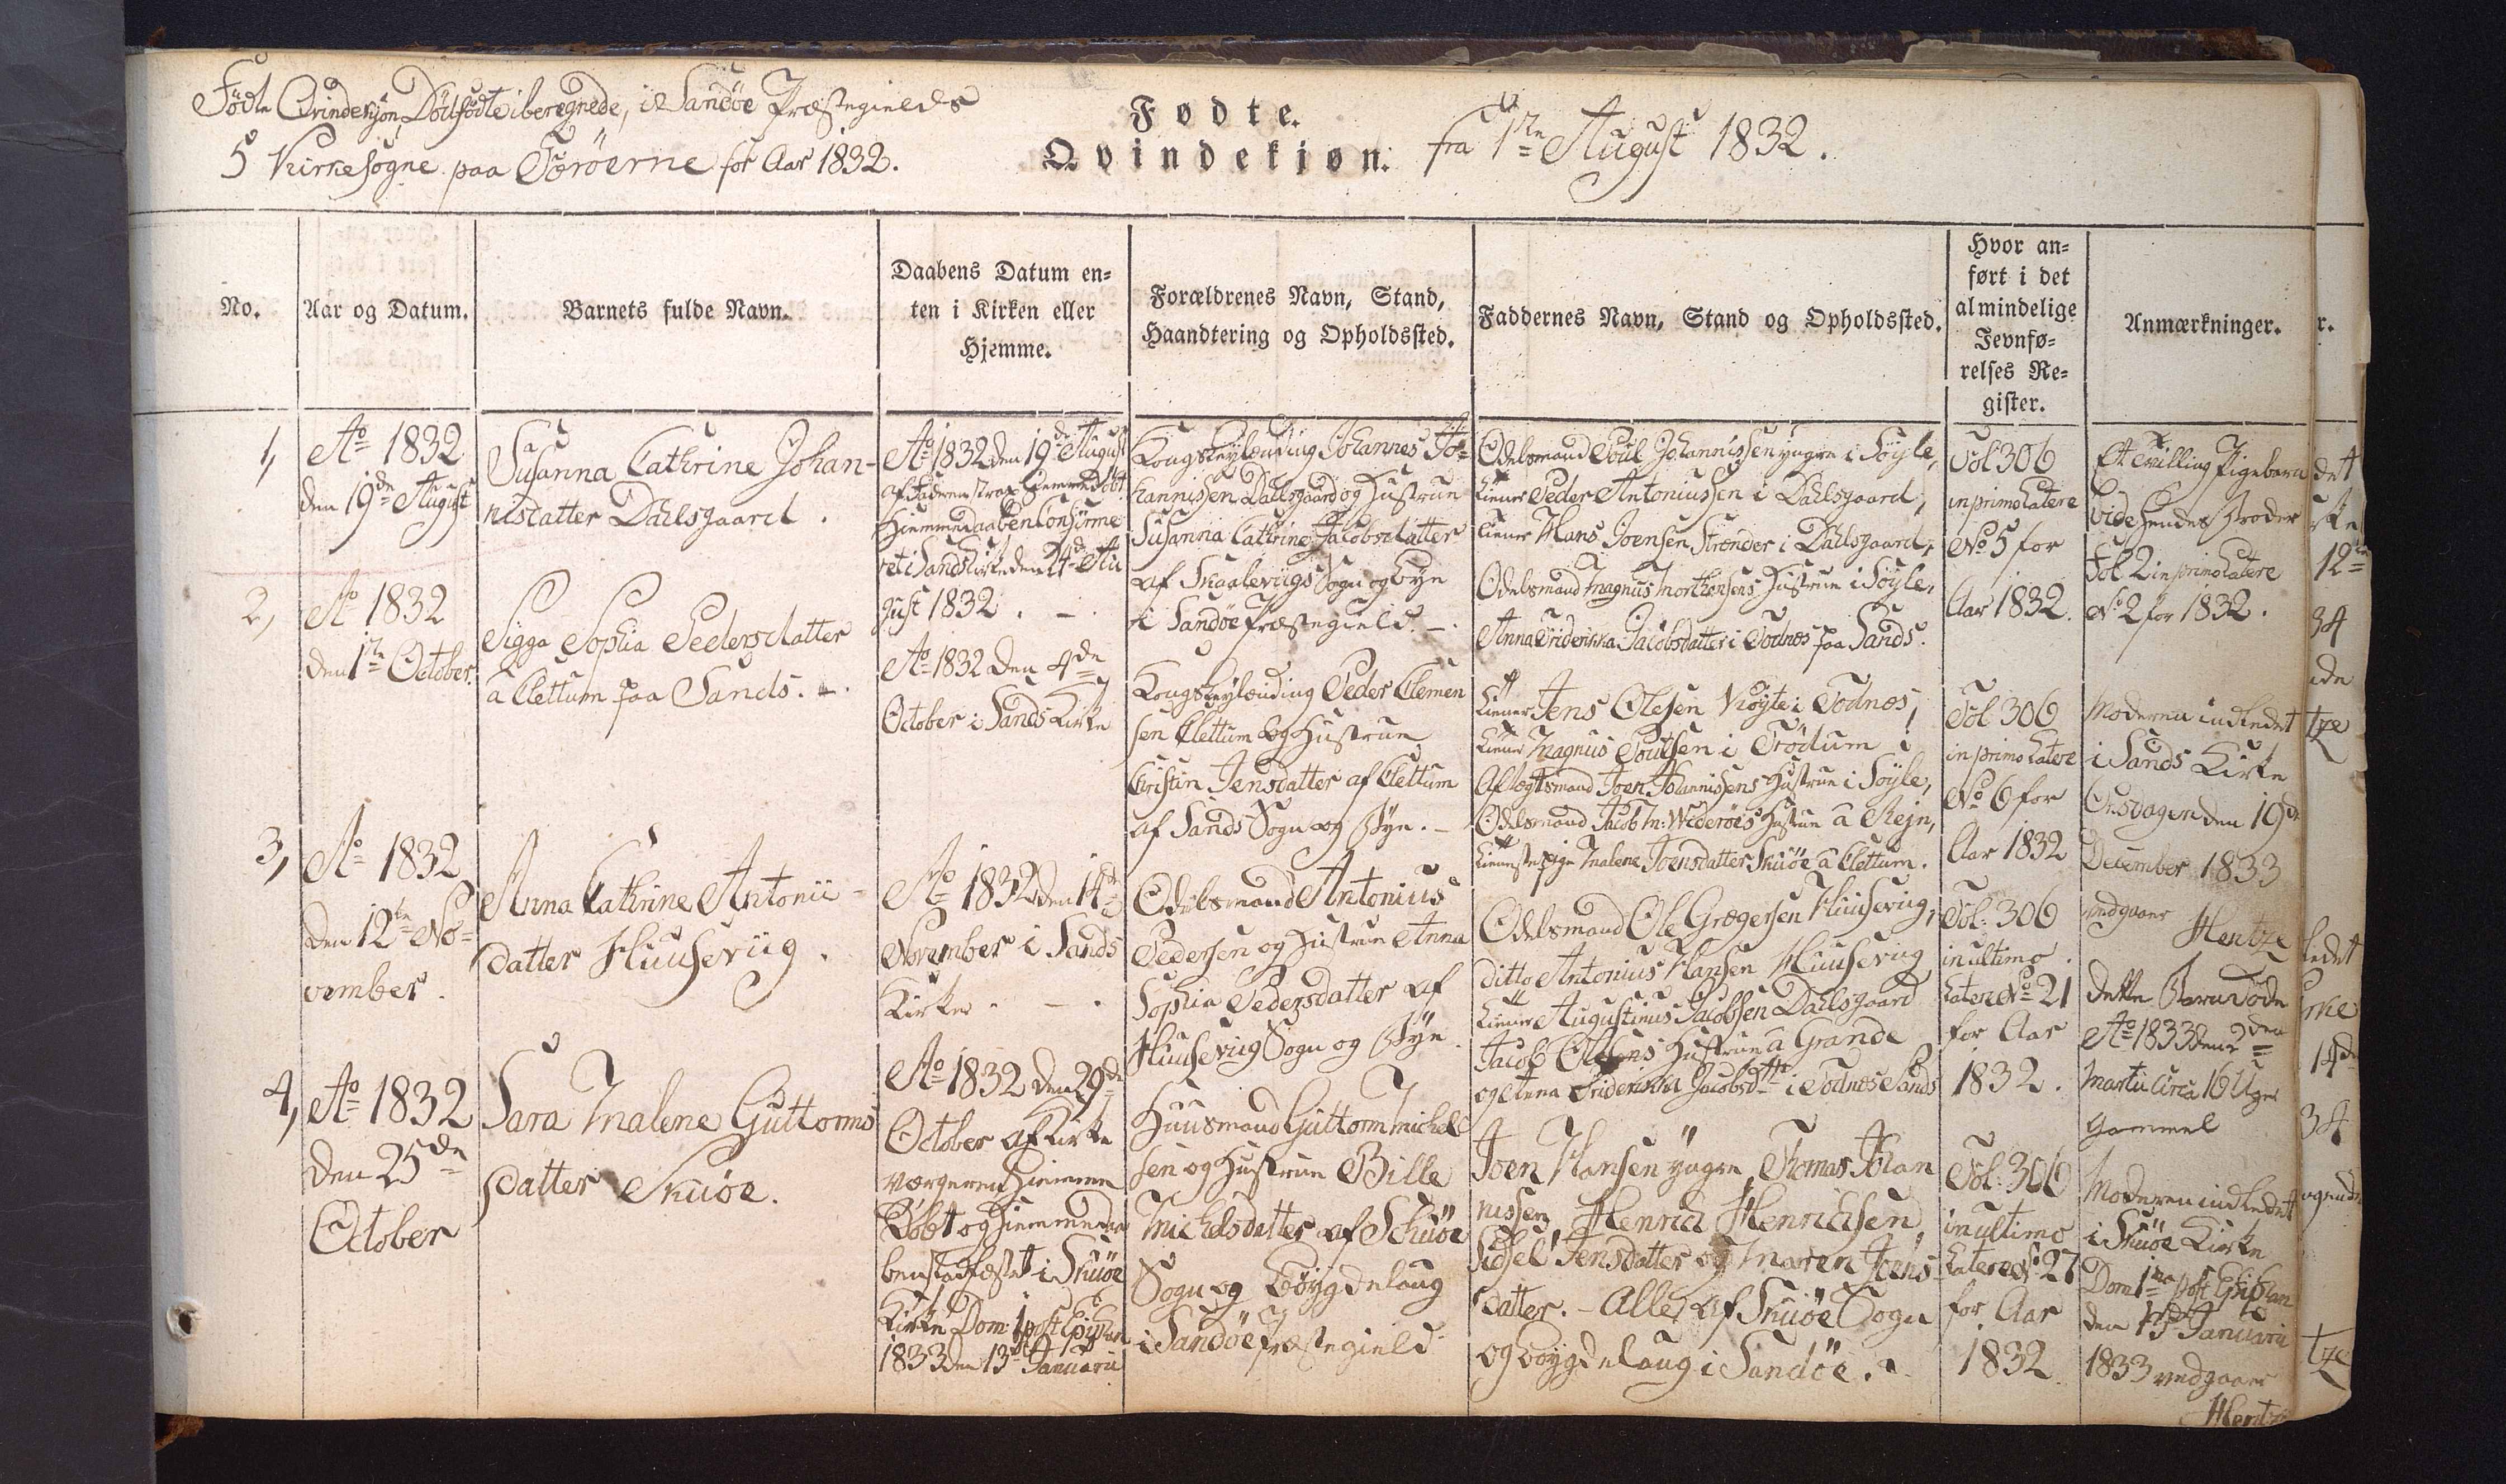 Fødte Qvindekjøn, Dödfødte iberegnede, i Sandöe Præstegields
5 Kirkesogne paa Færöerne for Aar 1832.
Fødte.
Qvindekjøn. fra 1ste August 1832.
No.
Aar og Datum.
Barnets fulde Navn.
Daabens Datum en-
ten i Kirken eller
Hjemme.
Forældrenes Navn, Stand,
Haandtering og Opholdssted.
Faddernes Navn, Stand og Opholdssted.
Hvor an-
ført i det
almindelige
Jevnfø-
relses Re-
gister.
Anmærkninger.
1,
Ao 1832
den 19de August
Susanna Cathrine Johan-
nisdatter Dahlsgaard.
Ao 1832 den 19de August
af Faderen strax hiemmedöbt
Hiemmedaaben Confirme
ret i Sands Kirke den 24de Au
gust 1832. -
Kongsleylænding Johannes Jo-
hannissen Dahlsgaard og Hustrue
Susanna Cathrine Jacobsdatter
af Skaalevigs Sogn og Bye
i Sandöe Præstegield. -
Odelsmand Poul Johannissen yngre i Söyle,
tiener Peder Antoniussen i Dahlsgaard,
tiener Hans Joensen Strænder i Dahlsgaard,
Odelsmand Magnus Morthensens Hustrue i Söyle,
Anna Friderikka Jacobsdatter i Todnes paa Sands.
Fol 306
in primo Latere
No 5 for
Aar 1832.
Et Tvilling Pigebarn
vide hendes Broder
Fol 2 in primo Latere
No 2 for 1832.
2,
Ao 1832
den 1ste October.
Sigga Sophia Pedersdatter
a Clettum paa Sands. -
Ao 1832 den 4de
October i Sands Kirke
Kongsleylænding Peder Clemen
sen Clettum og Hustrue
Christin Jensdatter af Clettum
af Sands Sogn og Bye. -
tiener Jens Olesen Kröyte i Todnes,
tiener Magnus Poulsen i Trödum
Aflægtsmand Joen Johannissens Hustrue i Söyle,
Odelsmand Jacob M: Wideröes Hustrue a Rejn,
tienestepige Malene Joensdatter Skuöe a Clettum.
Fol 306
in primo Latere
No 6 for
Aar 1832
Moderen indledet
i Sands Kirke
Onsdagen den 19de
December 1833
vedgaaer
Hentze
3,
Ao 1832
den 12te No-
vember.
Anna Cathrine Antonii-
datter Huusevig.
Ao 1832 den 14de
November i Sands
Kirke. -
Odelsmand Antonius
Pedersen og Hustrue Anna
Sophia Pedersdatter af
Huusevig Sogn og Bye.
Odelsmand Ole Grægersen Huusevig,
ditto Antonius Hansen Huusevig
tiener Augustinus Jacobsen Dahlsgaard
Jacob Olesens Hustrue a Grande
og Anna Friderikka Jacobsdtr i Todnes Sands
Fol: 306
in ultimo
Latere No 21
for Aar
1832.
dette Barn döde
Ao 1833 den 2den
Martii circa 16 Uger
gammel
4,
Ao 1832
den 25de
October
Sara Malene Guttorms
datter Skuöe.
Ao 1832 den 29de
October af Kirke
værgeren hiemme
Döbt og Hiemmedaa
ben stadfæstet i Skuöe
Kirke Dom: 1 post Epiphan
1833 den 13de Januarii
Huusmand Guttorm Michel
sen og Hustrue Bille
Michelsdatter af Skuöe
Sogn og Böygdelaug
i Sandöe Præstegield
Joen Hansen yngre, Thomas Johan
nissen, Henrich Henrichsen,
Sidsel Jensdatter og Maren Joens-
datter. - Alle af Skuöe Sogn
og Böygdelaug i Sandöe.
Fol: 306
in ultimo
Latere No 27
for Aar
1832.
Moderen indledet
i Skuöe Kirke
Dom 1ma post Epiphan
den 13de Januarii
1833 vedgaaer
Hentze